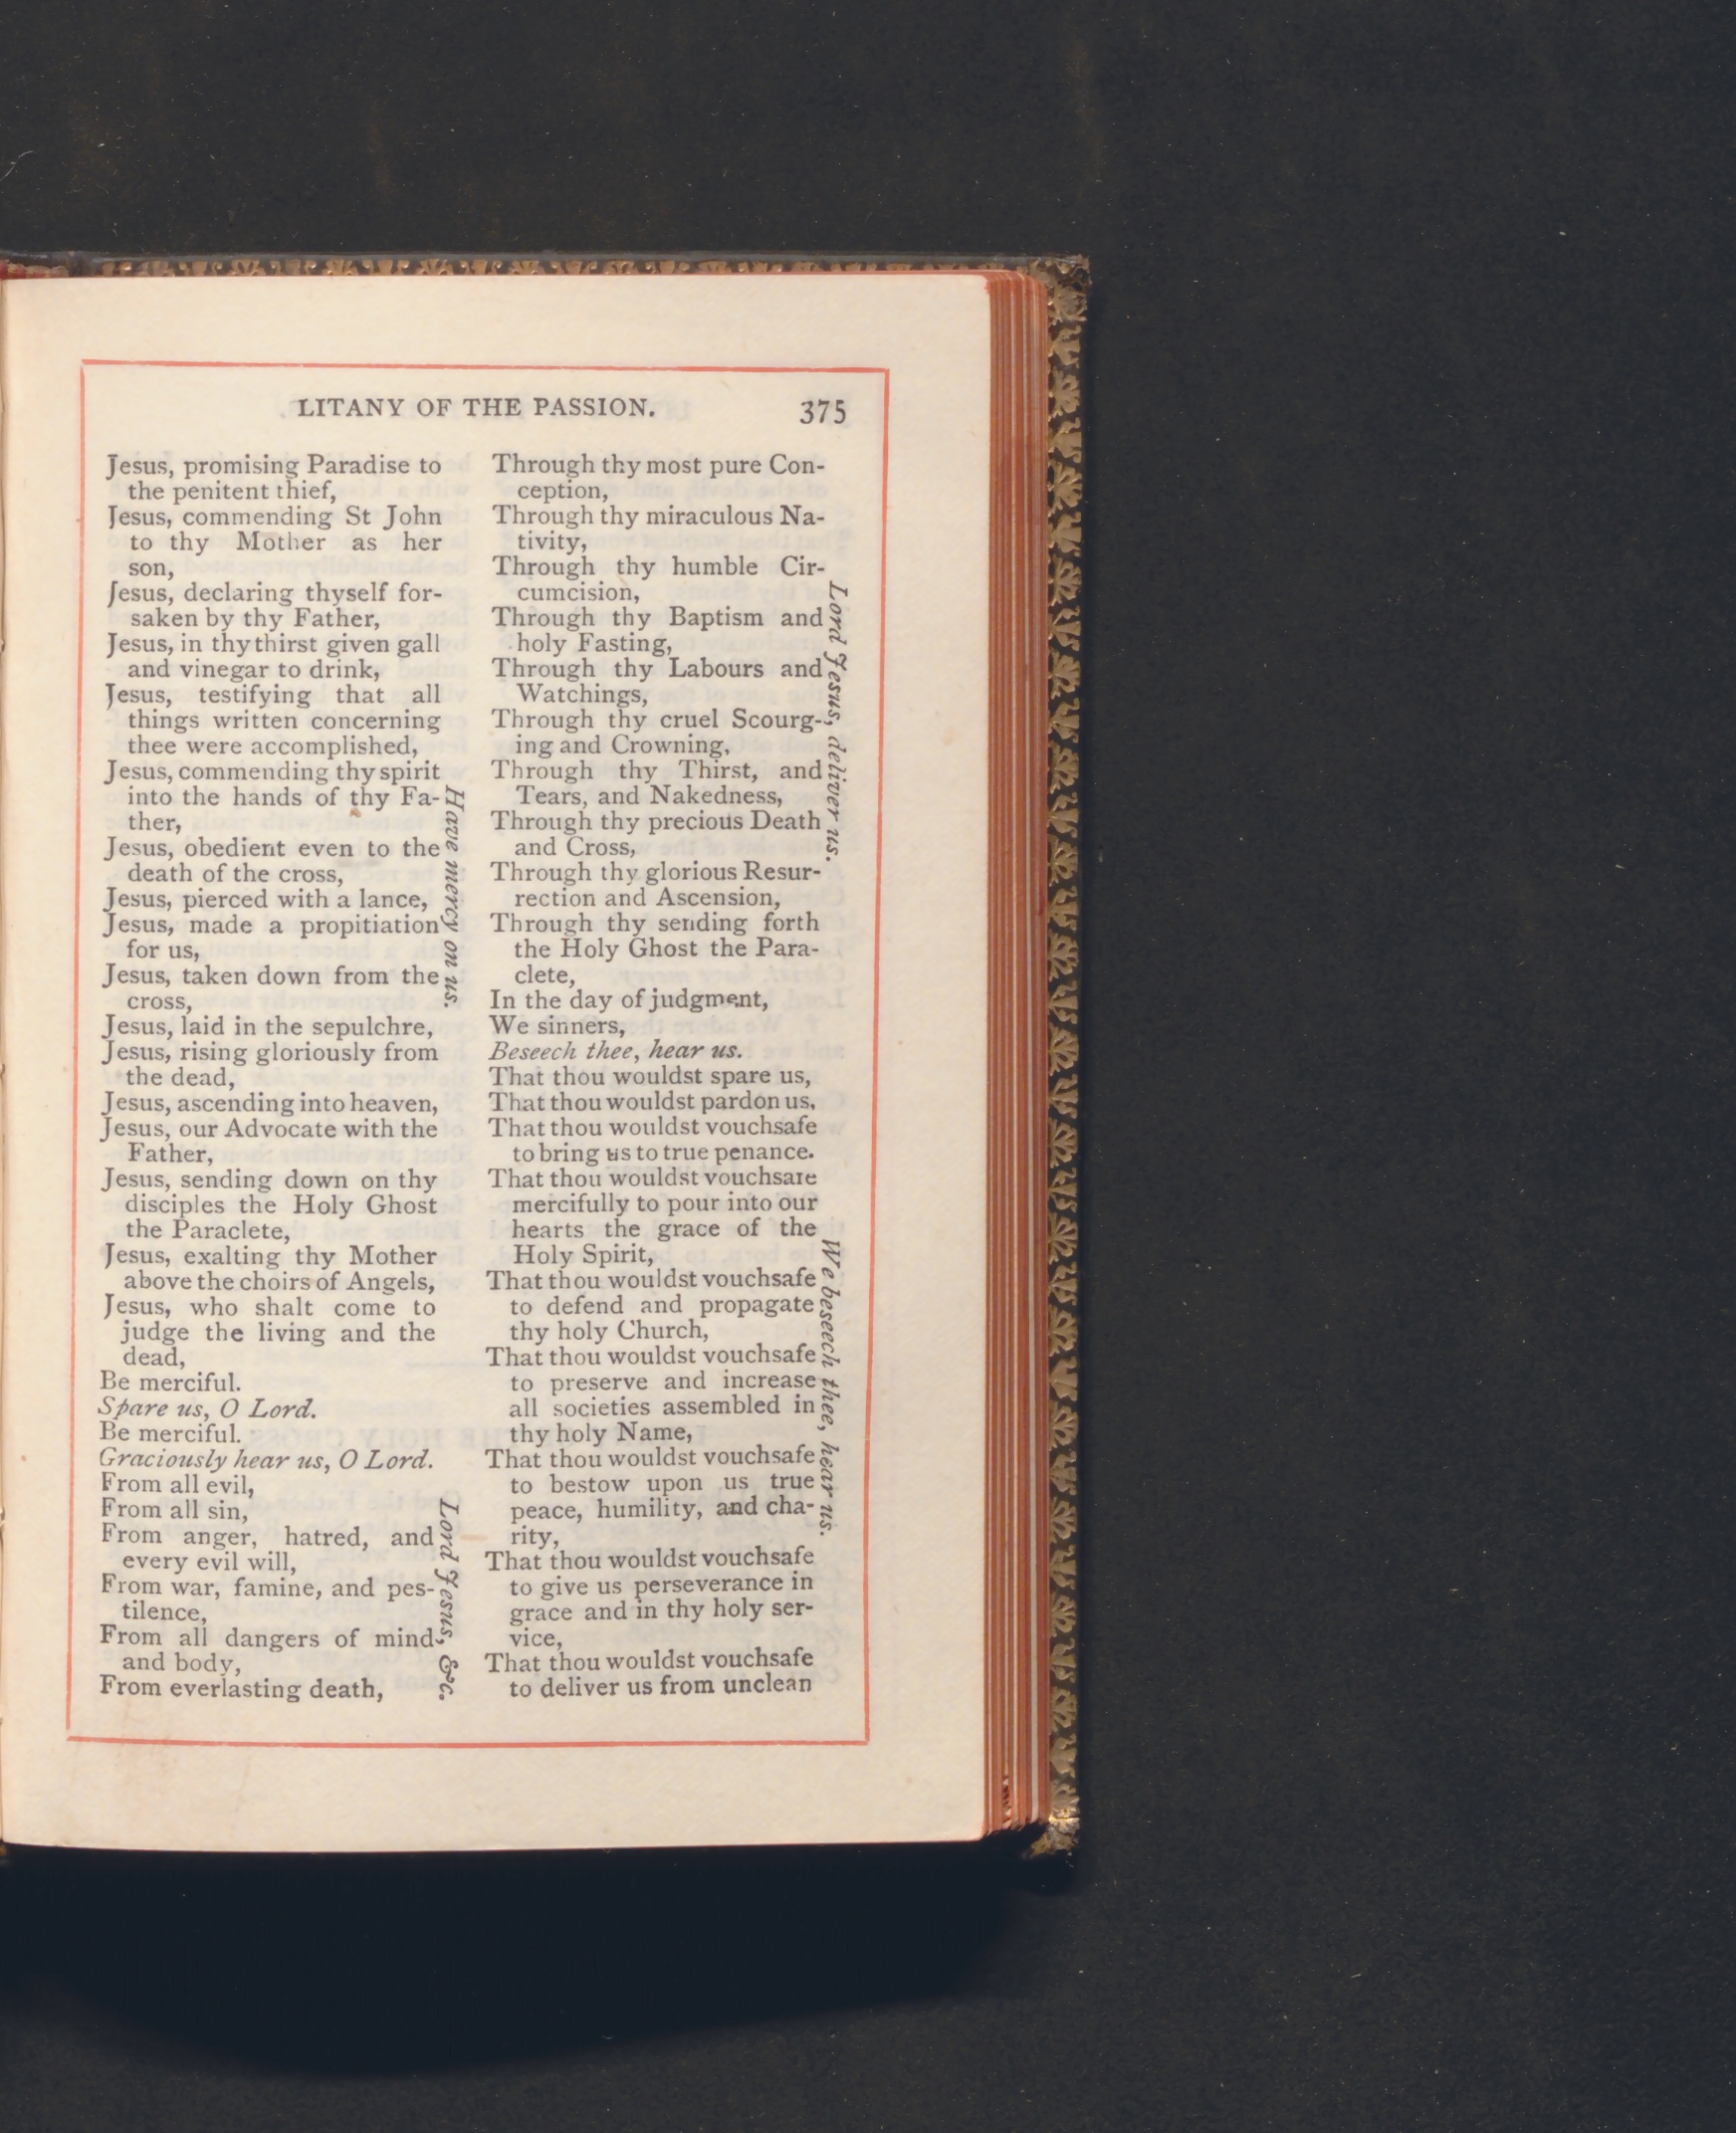 LITANY OF THE PASSION. 375
Jesus, promising Paradise to
the penitent thief,
Jesus, commending St John
to thy Mother as her
son,
Jesus, declaring thyself for-
saken by thy Father,
Jesus, in thy thirst given gall
and vinegar to drink,
Jesus, testifying that all
things written concerning
thee were accomplished,
Jesus, commending thy spirit
into the hands of thy Fa-
ther,
Jesus, obedient even to the
death of the cross,
Jesus, pierced with a lance,
Jesus, made a propitiation
for us,
Jesus, taken down from the
cross,
Jesus, laid in the sepulchre,
Jesus, rising gloriously from
the dead,
Jesus, ascending into heaven,
Jesus, our Advocate with the
Father,
Jesus, sending down on thy
disciples the Holy Ghost
the Paraclete,
Jesus, exalting thy Mother
above the choirs of Angels,
Jesus, who shalt come to
judge the living and the
dead,
Have mercy on us.
Be merciful.
Spare us, O Lord.
Be merciful.
Graciously hear us, O Lord.
From all evil,
From all sin,
From anger, hatred, and
every evil will,
From war, famine, and pes-
tilence,
From all dangers of mind
and body,
From everlasting death,
Lord Jesus, &c.
Through thy most pure Con-
ception,
Through thy miraculous Na-
tivity,
Through thy humble Cir-
cumcision,
Through thy Baptism and
holy Fasting,
Through thy Labours and
Watchings,
Through thy cruel Scourg-
ing and Crowning,
Through thy Thirst, and
Tears, and Nakedness,
Through thy precious Death
and Cross,
Through thy glorious Resur-
rection and Ascension,
Through thy sending forth
the Holy Ghost the Para-
clete,
In the day of judgment,
Lord Jesus, deliver us.
We sinners,
Beseech thee, hear us.
That thou wouldst spare us,
That thou wouldst pardon us,
That thou wouldst vouchsafe
to bring us to true penance.
That thou wouldst vouchsafe
mercifully to pour into our
hearts the grace of the
Holy Spirit,
That thou wouldst vouchsafe
to defend and propagate
thy holy Church,
That thou wouldst vouchsafe
to preserve and increase
all societies assembled in
thy holy Name,
That thou wouldst vouchsafe
to bestow upon us true
peace, humility, and cha-
rity,
That thou wouldst vouchsafe
to give us perseverance in
grace and in thy holy ser-
vice,
That thou wouldst vouchsafe
to deliver us from unclean
We beseech thee, hear us.